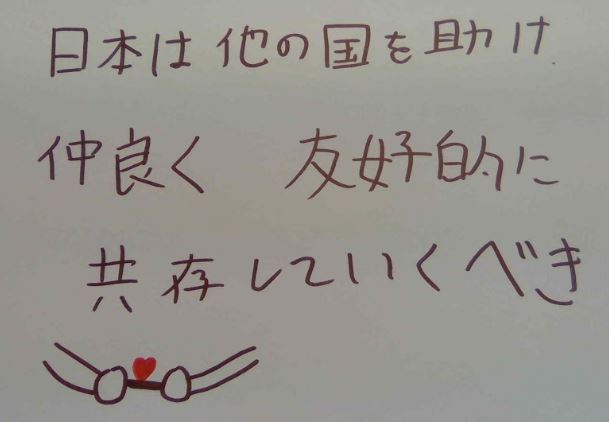 日本は他の国を助け
仲良く 友好的に
共存していくべき